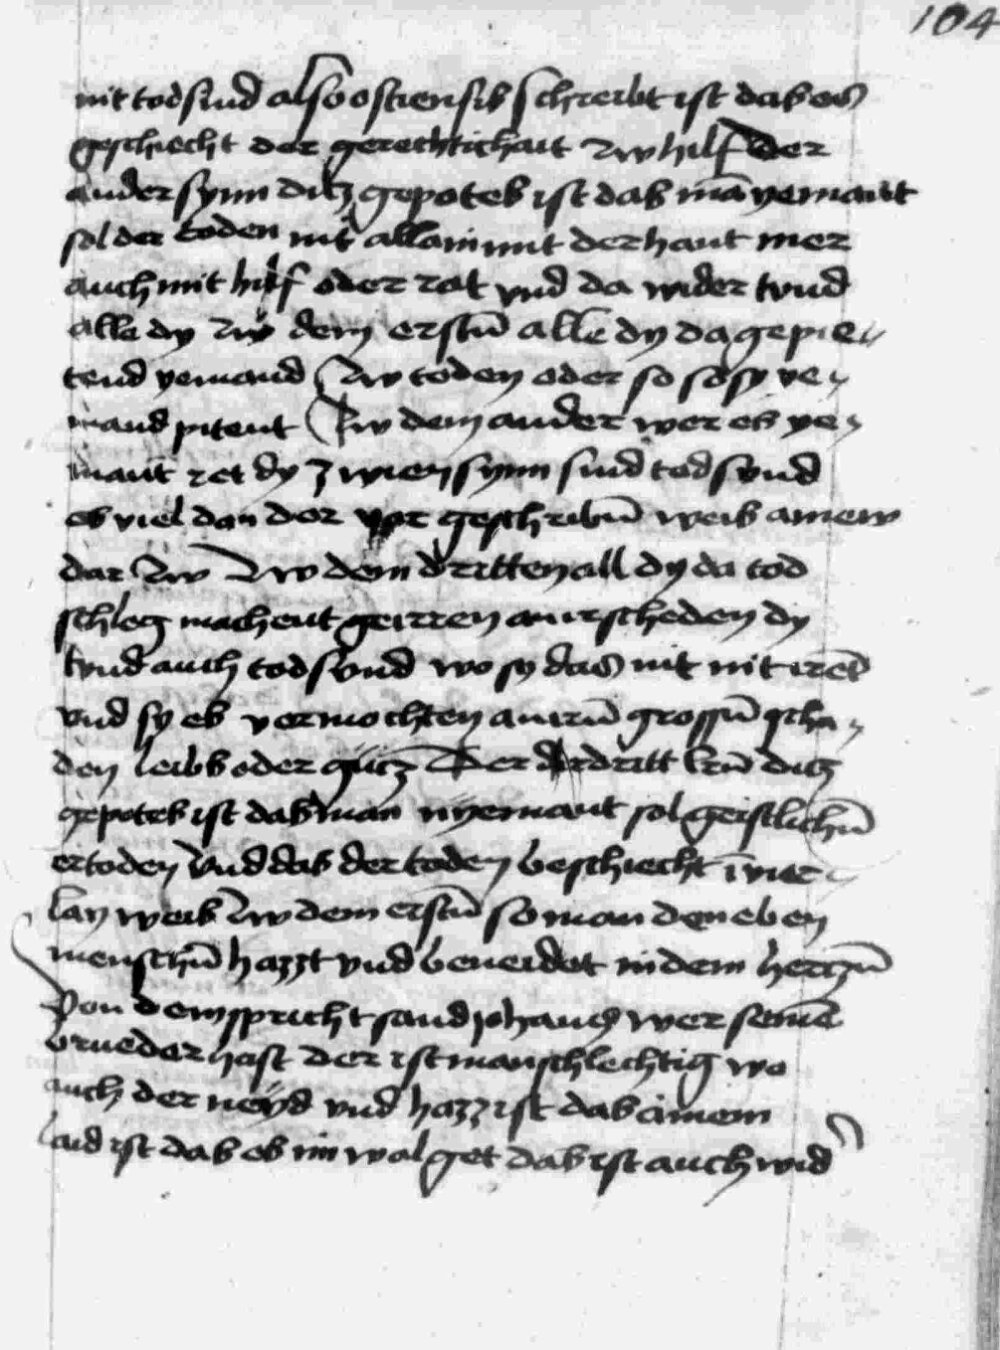 104
nit todsund also ostiensis schreibt ist das es
geschiecht der gerechtichait zw hilf der
ander synn ditz gepotes ist das mā yemant
sol der toden nit allain mit der hant mer
auch mit hilf oder rat vnd da wider tund
alle dy zw dem erstn̄ alle dy da gepie
tend yemand zw toden oder so sy ye
mand pitent zw dem ander wer es ye
mant ret dy zwien synn sind tod sund
es viel dan der vor geschribn̄ weis ainew
dar zw zw dem dritten all dy da tod
schleg machent gerren an vrscheden dy
tund auch todsund wo sy das nit nit irēt
vnd sy es vermochten an irn̄ grossn̄ scha
den leibs oder gutz Der dritt sin̄ ditz
gepotes ist das man nyemant sol geistlichn̄
ertoden Vnd das der toden beschiecht in vier
lay weis zw dem erstn̄ so man den eben
menschn̄ hazzt vnd beneidet in dem hertzn̄
Von dem spricht sand johans wer seinē
brueder hast der ist manschlechtig wo
auch der neyd vnd hazz ist das ainem
laid ist das es im wol get das ist auch wid